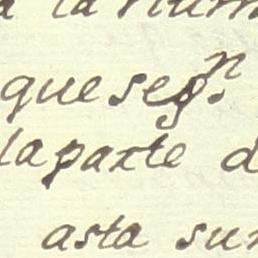 a la num
que seg.n
la parte d
asta su